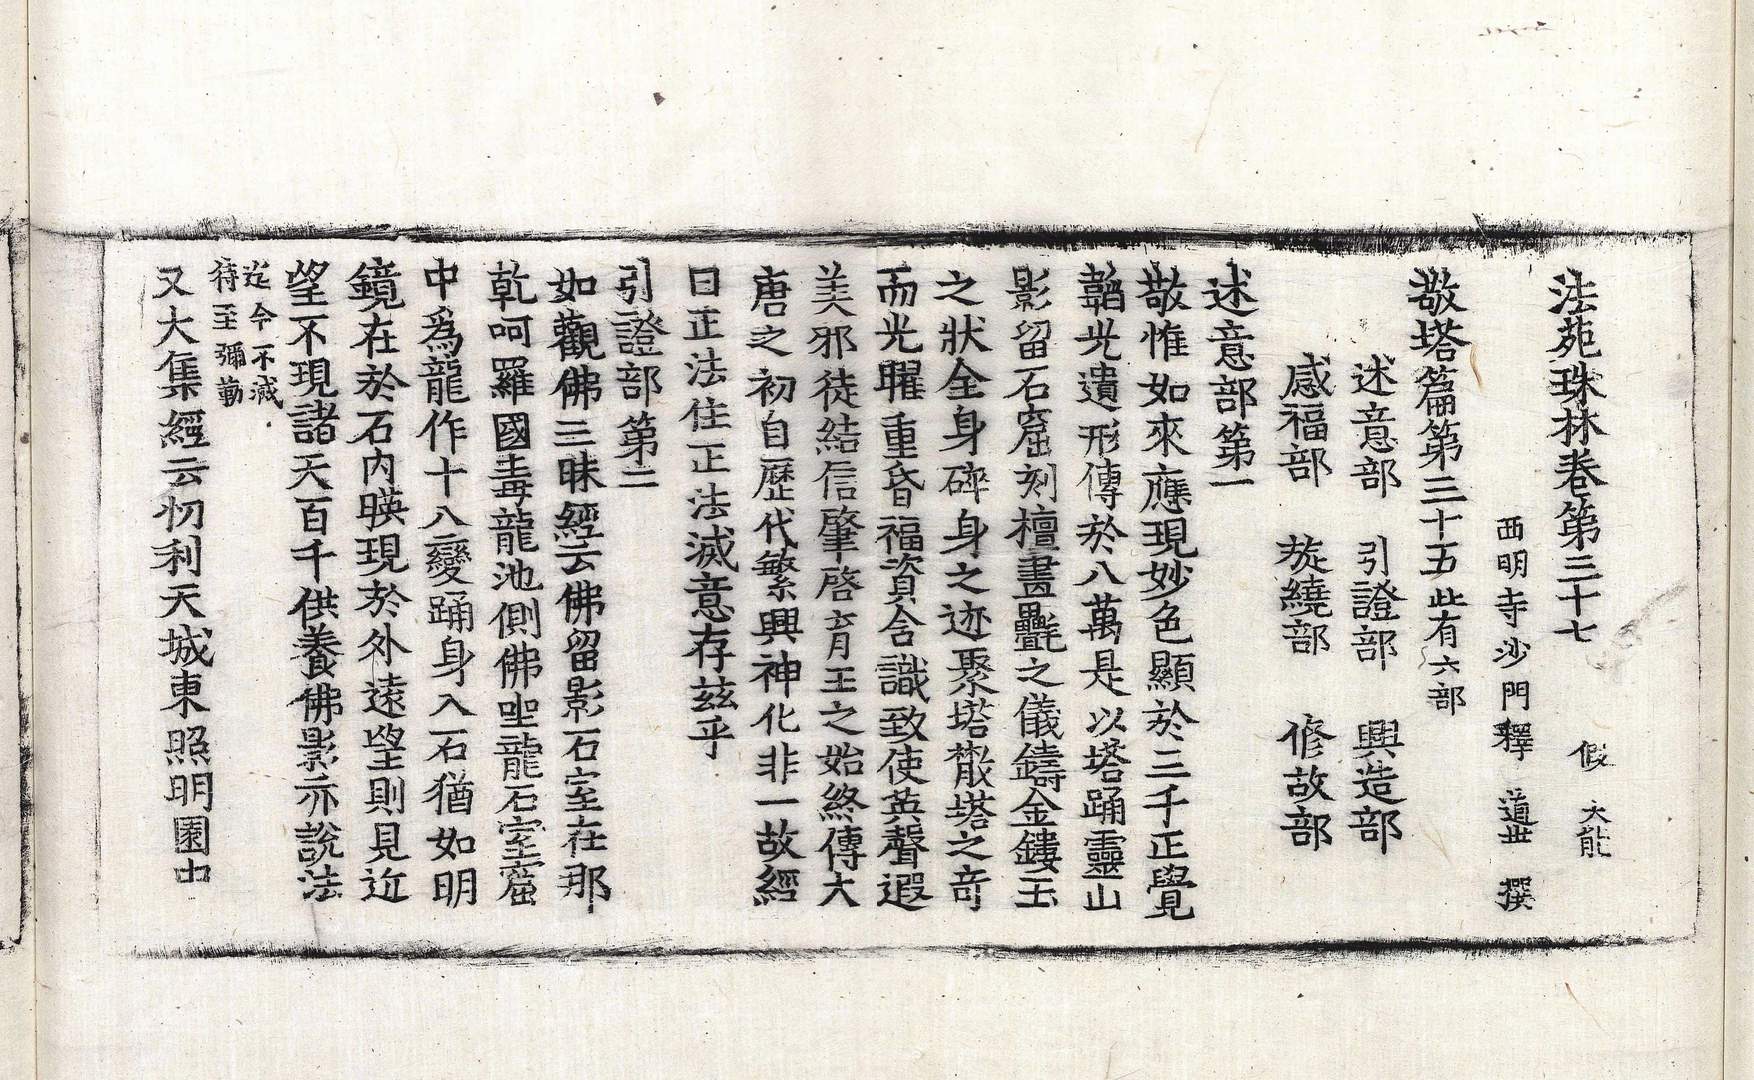 法苑珠林卷第三十七 假 大能
西明寺沙門釋 道世 撰
敬塔篇第三十五此有六部
述意部 引證部 興造部
感福部 旋繞部 修故部
述意部第一
敬惟如來應現妙色顯於三千正覺
韜光遺形傳於八萬是以塔踊靈山
影留石窟刻檀畫氎之儀鑄金鏤玉
之狀全身碎身之迹聚塔散塔之奇
而光曜重昏福資含識致使英聲遐
美邪徒結信肇啓育王之始終傳大
唐之初自歷代繁興神化非一故經
曰正法住正法滅意存茲乎
引證部第二
如觀佛三昧經云佛留影石室在那
乾呵羅國毒龍池側佛坐龍石室窟
中爲龍作十八變踊身入石猶如明
鏡在於石內暎現於外遠望則見近
望不現諸天百千供養佛影亦說法
迄今不滅
待至彌勒
又大集經云忉利天城東照明園中